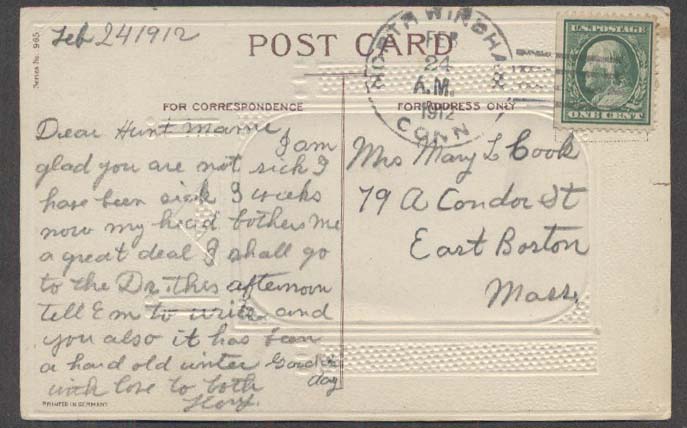 Feb 24 1912
Series No. 965
POST CARD
NORTH WINDHAM
FEB
24
A.M.
1912
CONN
U.S. POSTAGE
ONE CENT
FOR CORRESPONDENCE
FOR ADDRESS ONLY
Dear Aunt Mamie
I am
glad you are not sick I
have been sick 3 weeks
now my head bothers me
a great deal I shall go
to the Dr. this afternoon
tell Em to write and
you also it has been
a hard old winter Good
day
with love to both
Mrs Mary L Cook
79 A Condor St
East Boston
Mass.
PRINTED IN GERMANY